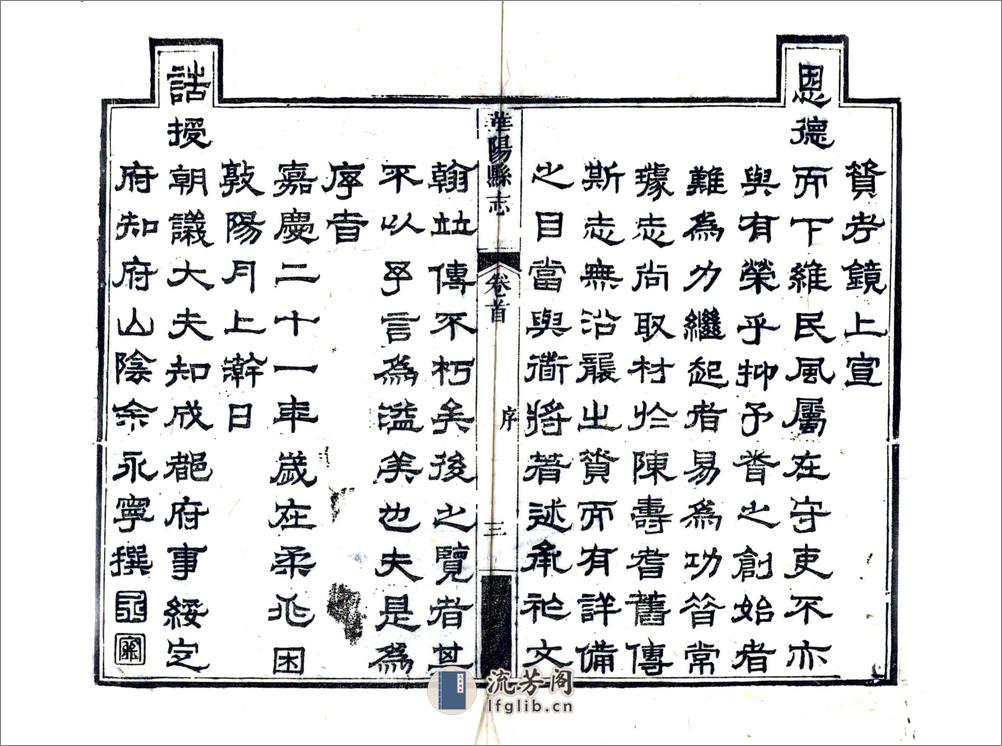 資考鏡上宣
恩德而下維民風屬在守吏不亦
與有榮乎抑予之創始者
難為力繼起者易為功昔常
璩志尚取材於陳壽耆舊傳
斯志無沿襲之資而有詳備
之目當與衜將著述承祚文
華陽縣志 卷首 序 三
翰並傳不朽矣後之覽者其
不以予言為溢美也夫是為
序旹
嘉慶二十一年歲在柔兆困
敦陽月上澣日
誥授朝議大夫知成都府事綏定
府知府山陰余永寧撰
流芳阁
lfglib.cn